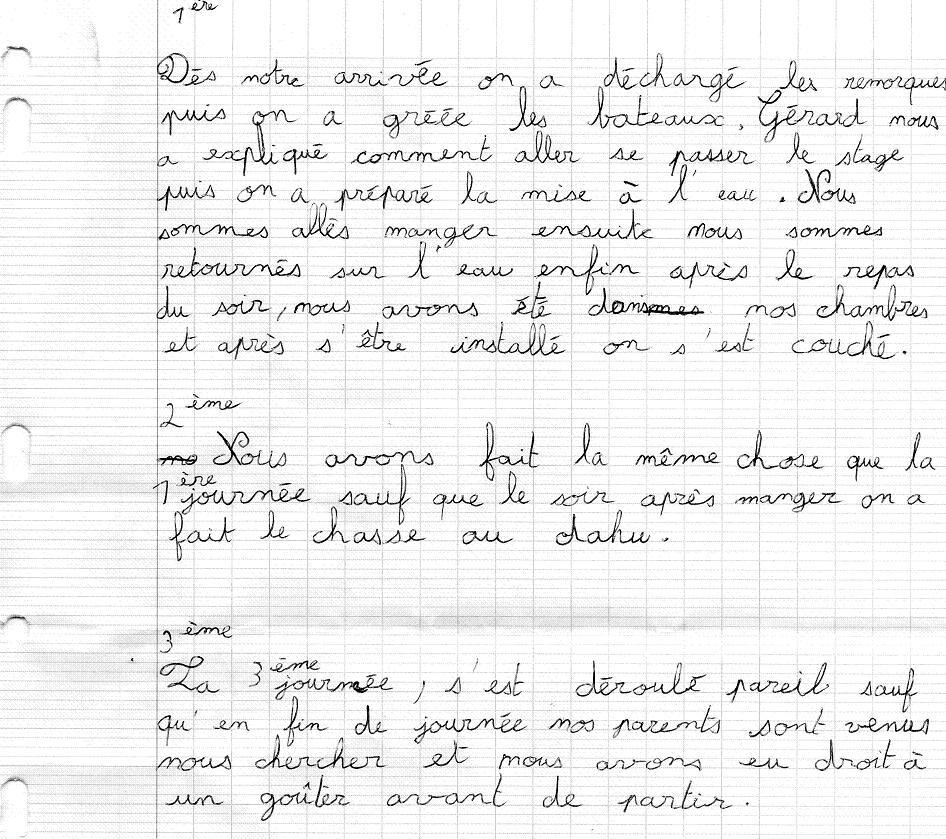 1ère
Dés notre arrivée on a déchargé les remorques
puis on a gréée les bateaux. Gérard nous
a expliqué comment aller se passer le stage
puis on a préparé la mise à l'eau. Nous
sommes allés manger ensuite nous sommes
retournés sur l'eau enfin après le repas
du soir, nous avons été dans nos chambres
et après s'être installé on s'est couché.
2ème
Nous avons fait la même chose que la
1ère journée sauf que le soir après manger on a
fait le chasse au dahu.
3ème
La 3ème journée, s'est déroulé pareil sauf
qu'en fin de journée nos parents sont venus
nous chercher et nous avons eu droit à
un goûter avant de partir.